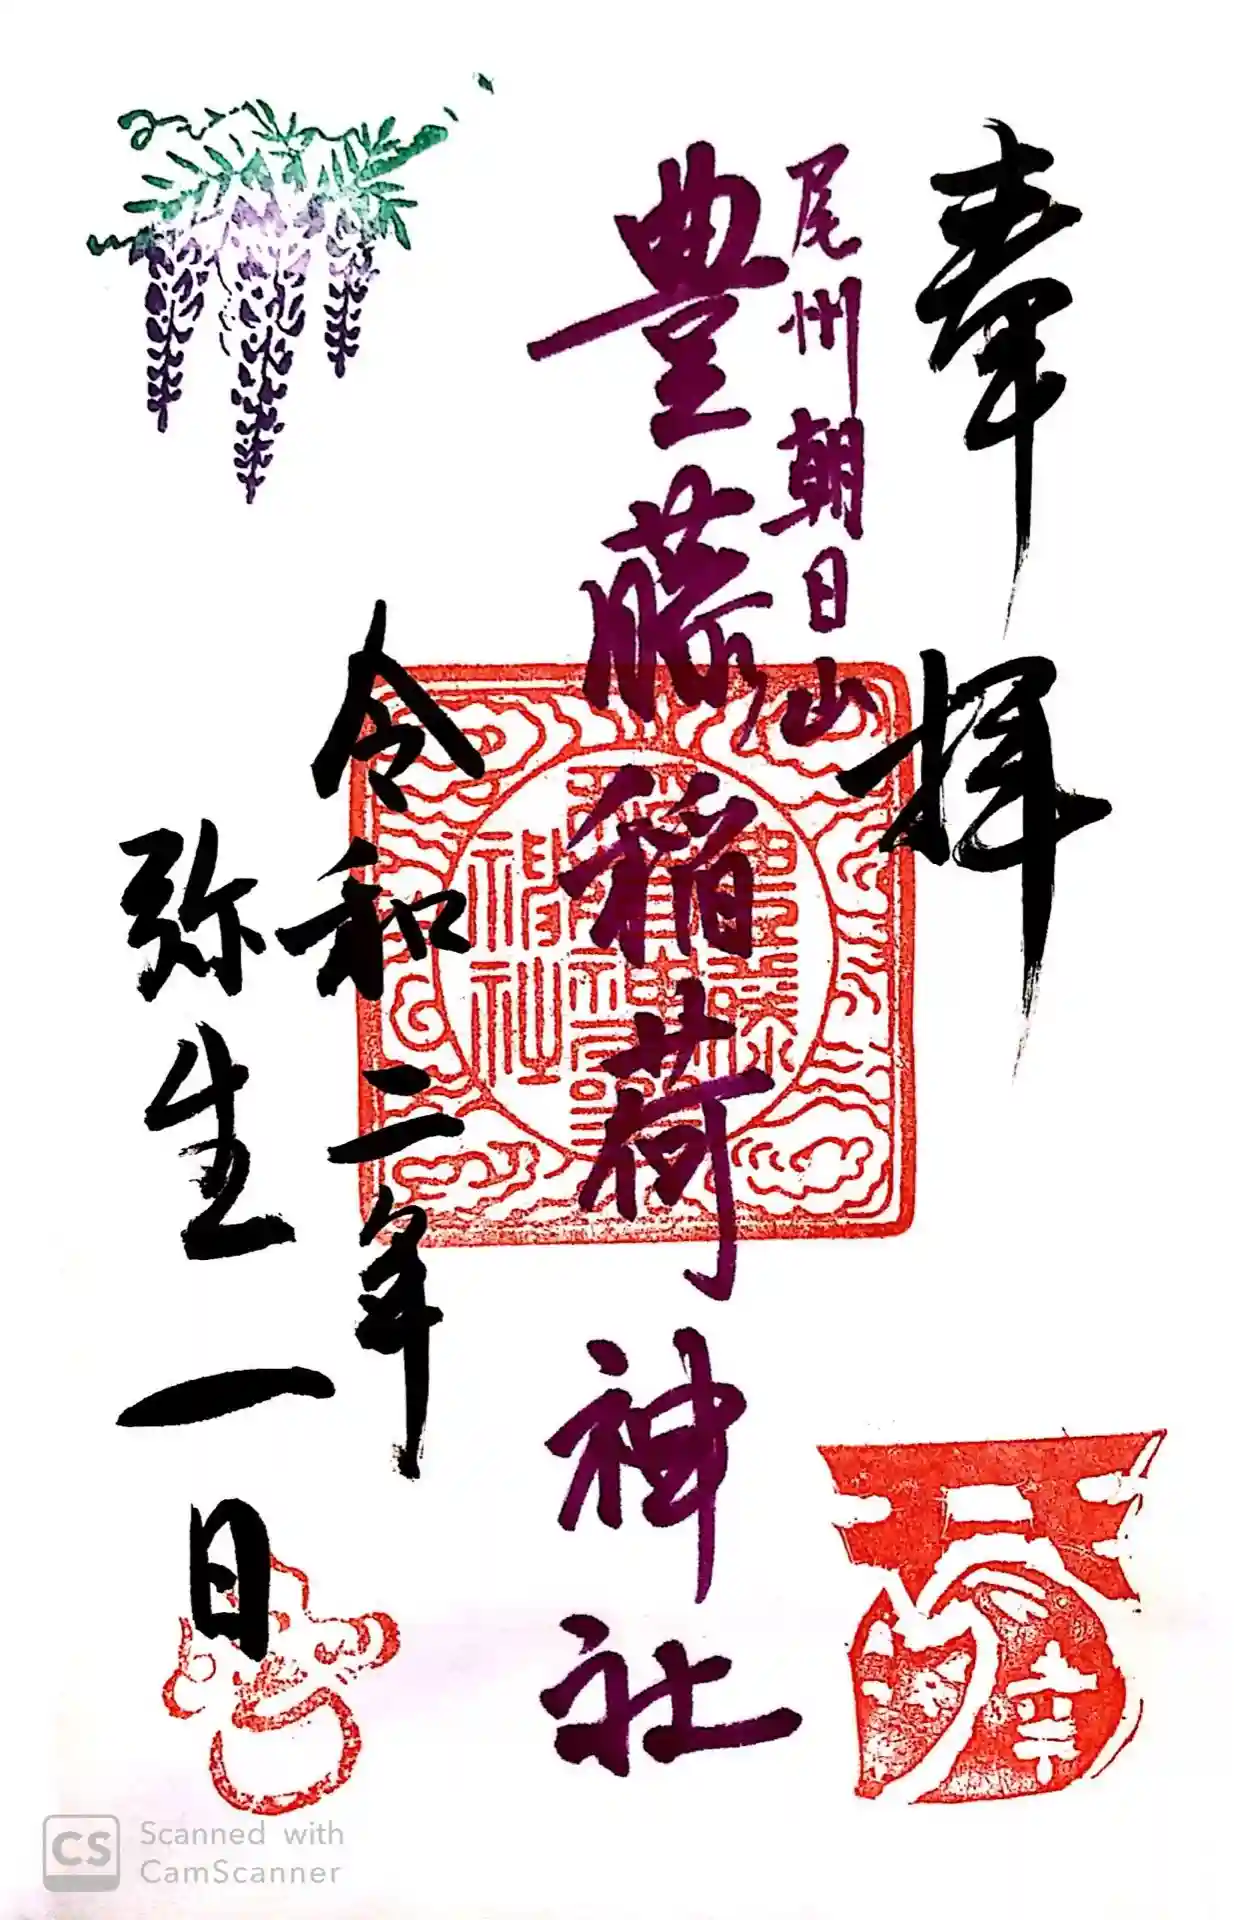 奉拝
尾州朝日山
豊藤稲荷神社
令和二年
弥生一日
幸
CS Scanned with
CamScanner